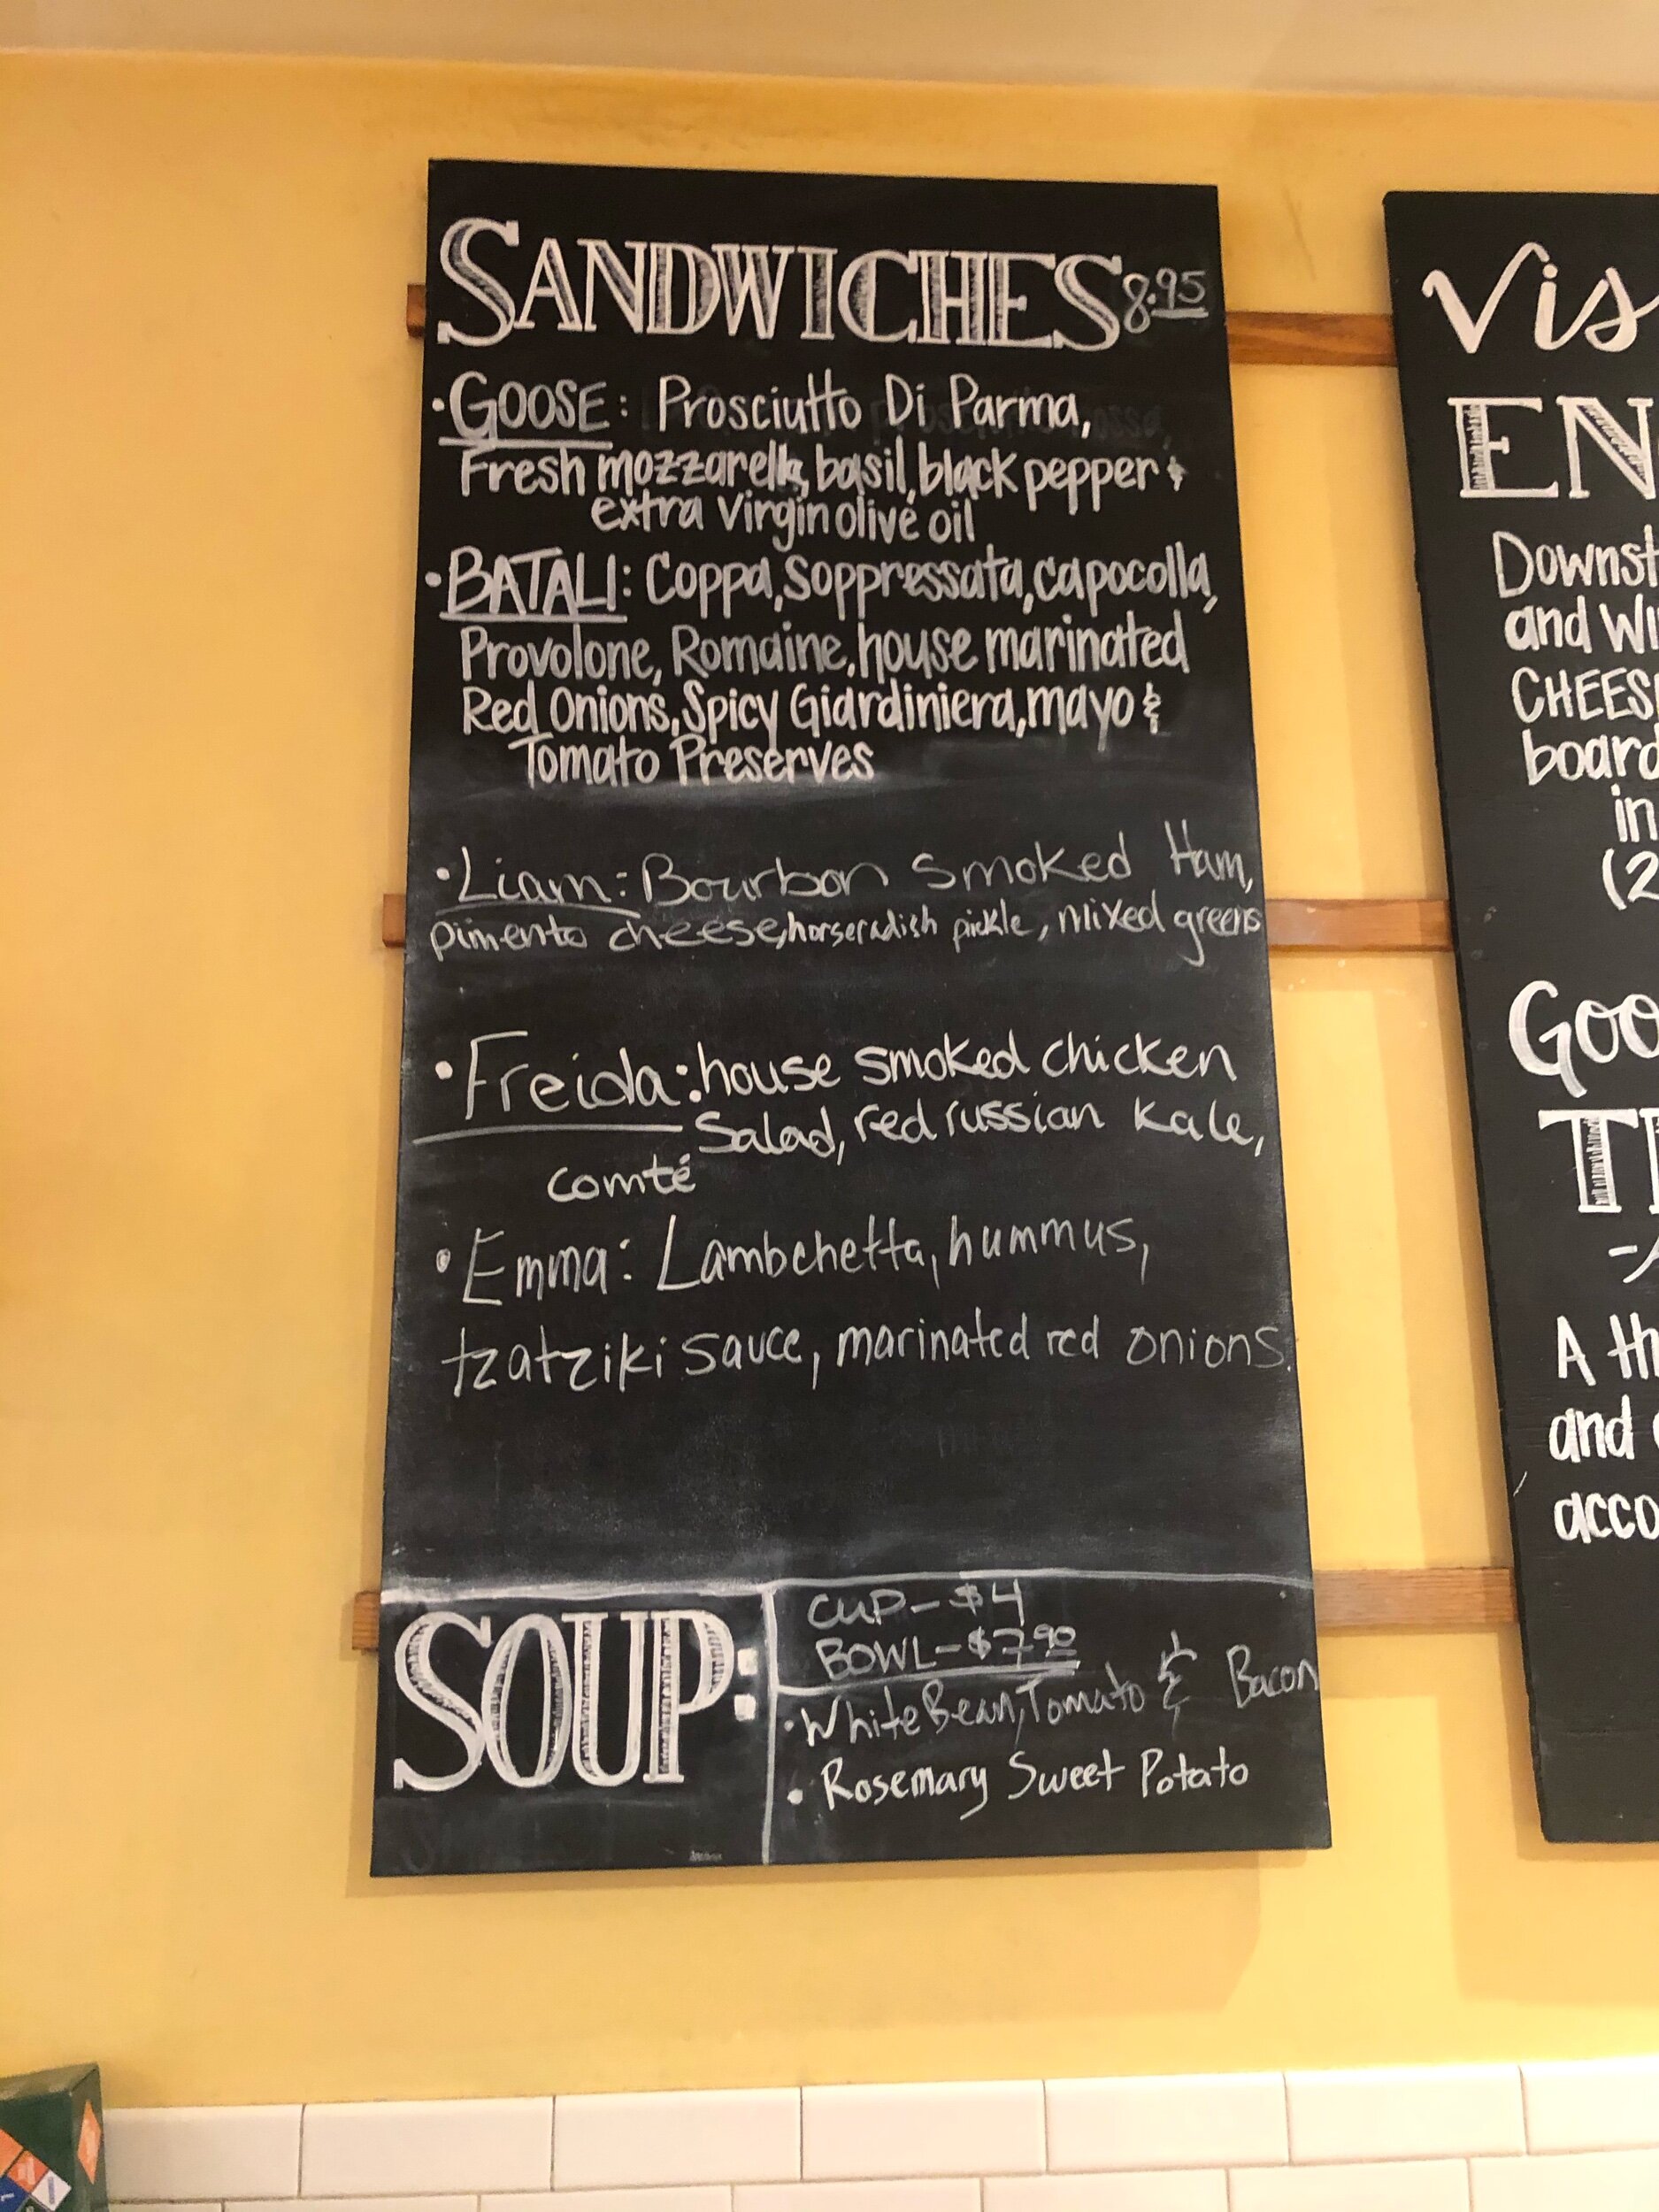 SANDWICHES 8.95
•GOOSE: Prosciutto Di Parma,
Fresh mozzarella, basil, black pepper &
extra virgin olive oil
•BATALI: Coppa, Soppressata, capocolla,
Provolone, Romaine, house marinated
Red Onions, Spicy Giardiniera, mayo &
Tomato Preserves
•Liam: Bourbon Smoked Ham,
pimento cheese, horseradish pickle, mixed greens
•Freida: house smoked chicken
Salad, red russian Kale,
comté
•Emma: Lambchetta, hummus,
tzatziki sauce, marinated red onions.
SOUP:
CUP- $4
BOWL- $7.90
•White Bean, Tomato & Bacon
•Rosemary Sweet Potato
Vis
EN
Downst
and Wi
CHEES
board
in
(2
Goo
T
A th
and
acco